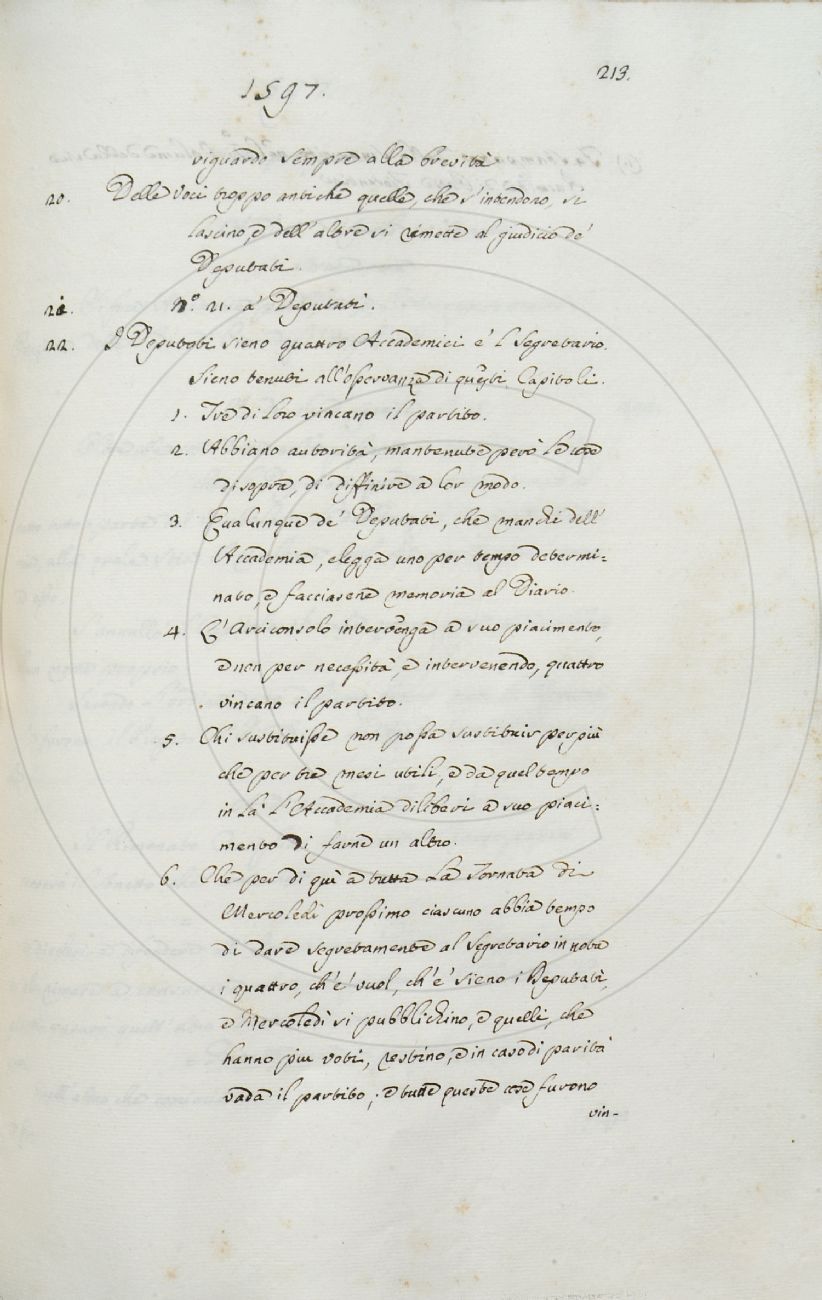 213.
1597.
riguardo sempre alla brevità
20. Delle voci troppo antiche quelle, che s'intendono, si
lascino, e dell'altre si rimette al giudicio de'
Deputati.
21. N.° 21. a' Deputati.
22. I Deputati sieno quattro Accademici e 'l Segretario.
Sieno tenuti all'osservanza di questi Capitoli.
1. Tre di loro vincano il partito.
2. Abbiano autorità, mantenute però le cose
di sopra, di diffinire a lor modo.
3. Qualunque de' Deputati, che manchi dell'
Accademia, elegga uno per tempo determi=
nato, e facciasene memoria al Diario.
4. L'Arciconsolo intervenga a suo piacimento,
e non per necessità, e intervenendo, quattro
vincano il partito.
5. Chi sustituisse non possa sustituir per più
che per tre mesi utili, e da quel tempo
in là l'Accademia diliberi a suo piaci=
mento di farne un altro.
6. Che per di quì a tutta la Tornata di
Mercoledì prossimo ciascuno abbia tempo
di dare segretamente al Segretario in nota
i quattro, ch'e' vuol, ch'e' sieno i Deputati,
e Mercoledì si pubblichino, e quelli, che
hanno più voti, restino, e in caso di parità
vada il partito; e tutte queste cose furono
vin-